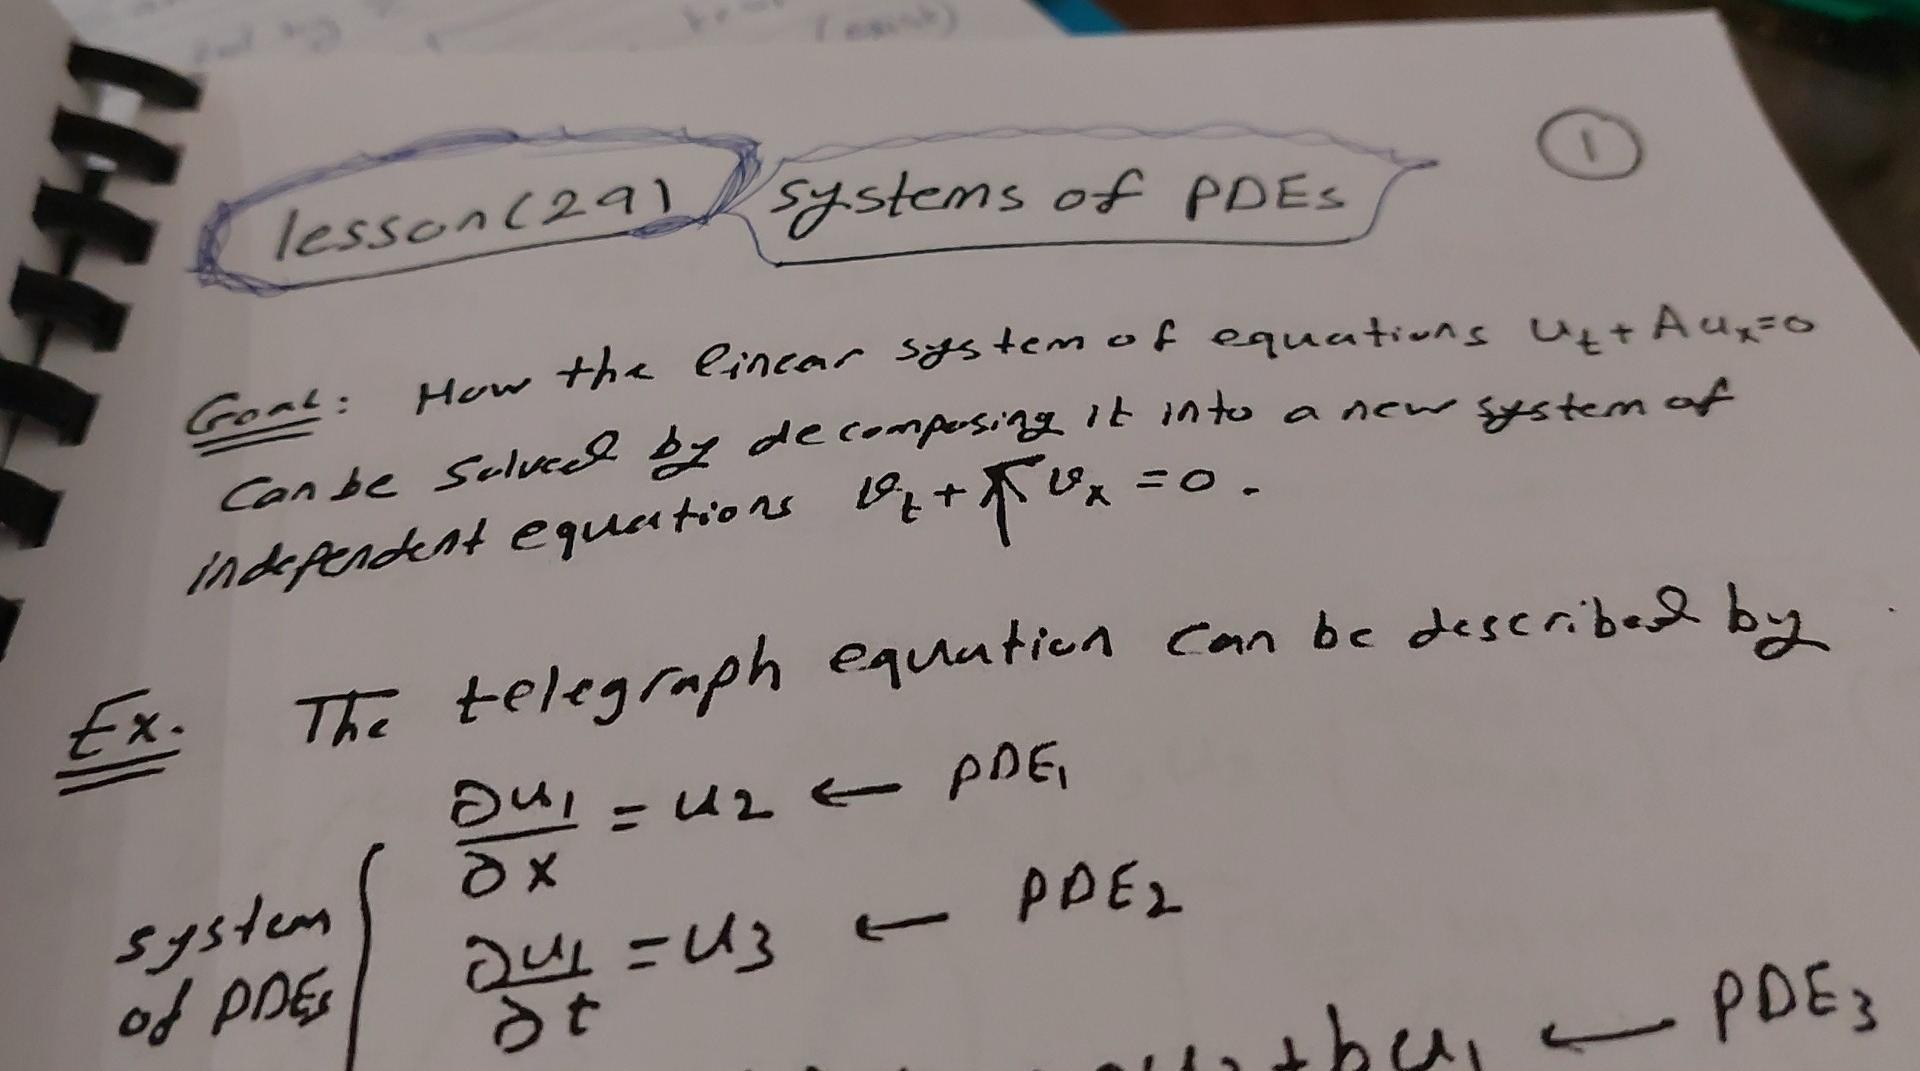 ①
lesson(29) systems of PDEs
Goal: How the linear system of equations u_t + A u_x = 0
Can be solved by decomposing it into a new system of
independent equations v_t + Λ v_x = 0.
Ex. The telegraph equation can be described by
∂u₁/∂x = u₂ ← PDE₁
system
of PDEs
∂u₁/∂t = u₃ ← PDE₂
+ bu₁ ← PDE₃